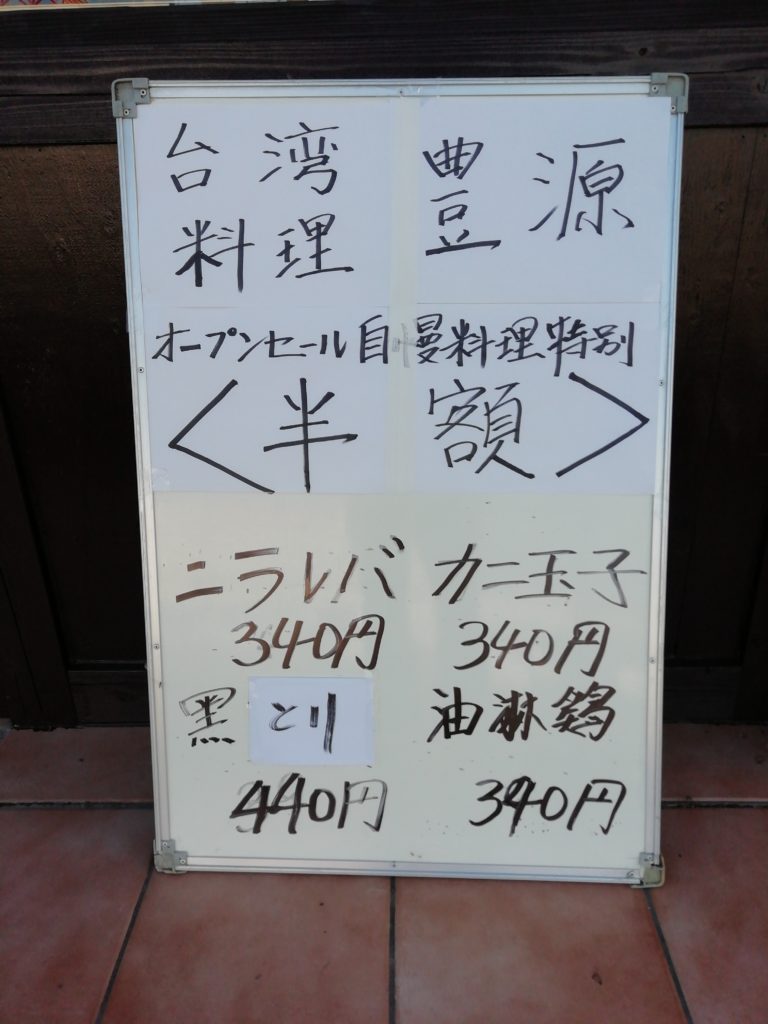 台湾 豊源
料理
オープンセール自慢料理特別
<半額>
ニラレバ カニ玉子
340円 340円
黒とり 油淋鶏
440円 340円